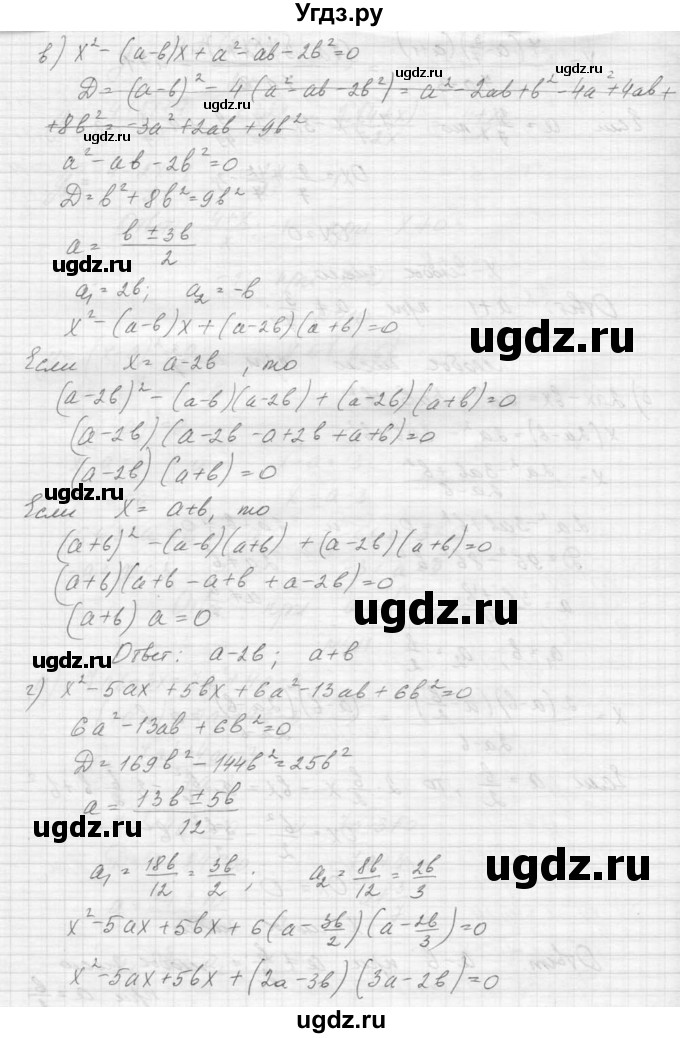 Угдз.ру
в) x² - (a-b)x + a² - ab - 2b² = 0
D = (a-b)² - 4(a² - ab - 2b²) = a² - 2ab + b² - 4a² + 4ab +
+ 8b² = -3a² + 2ab + 9b²
a² - ab - 2b² = 0
D = b² + 8b² = 9b²
a = (b ± 3b)/2
a₁ = 2b; a₂ = -b
x² - (a-b)x + (a-2b)(a+b) = 0
Если x = a-2b, то
(a-2b)² - (a-b)(a-2b) + (a-2b)(a+b) = 0
(a-2b)(a-2b-a+2b+a+b) = 0
(a-2b)(a+b) = 0
Если x = a+b, то
(a+b)² - (a-b)(a+b) + (a-2b)(a+b) = 0
(a+b)(a+b-a+b+a-2b) = 0
(a+b) a = 0
Ответ: a-2b; a+b
г) x² - 5ax + 5bx + 6a² - 13ab + 6b² = 0
6a² - 13ab + 6b² = 0
D = 169b² - 144b² = 25b²
a = (13b ± 5b)/12
a₁ = 18b/12 = 3b/2; a₂ = 8b/12 = 2b/3
x² - 5ax + 5bx + 6(a - 3b/2)(a - 2b/3) = 0
x² - 5ax + 5bx + (2a-3b)(3a-2b) = 0
ugdz.ru
ugdz.ru
ugdz.ru
ugdz.ru
ugdz.ru
ugdz.ru
ugdz.ru
ugdz.ru
ugdz.ru
ugdz.ru
ugdz.ru
ugdz.ru